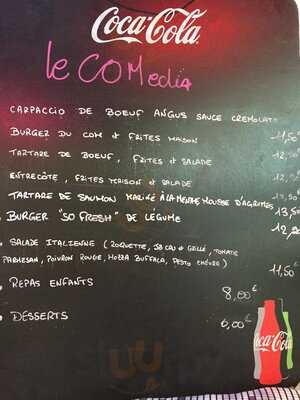 Coca-Cola
le COMedia
CARPACCIO DE BOEUF ANGUS SAUCE CREMOLATA
11,50
BURGER DU COM + FRITES MAISON
TARTARE DE BOEUF, FRITES + SALADE
ENTRECÔTE, FRITES MAISON + SALADE
TARTARE DE SAUMON MARINÉ À LA MENTHE MOUSSE D'AGRUMES
BURGER "SO FRESH" DE LEGUME
SALADE ITALIENNE (ROQUETTE, GRILLÉ, TOMATE
PARMESAN, POIVRON ROUGE, BUFFALA, PESTO CHÈVRE)
11,50€
REPAS ENFANTS 8,00€
DESSERTS 6,00€
Coca-Cola